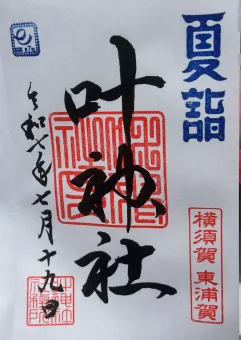 夏詣
横須賀 東浦賀
叶神社
令和七年七月十九日